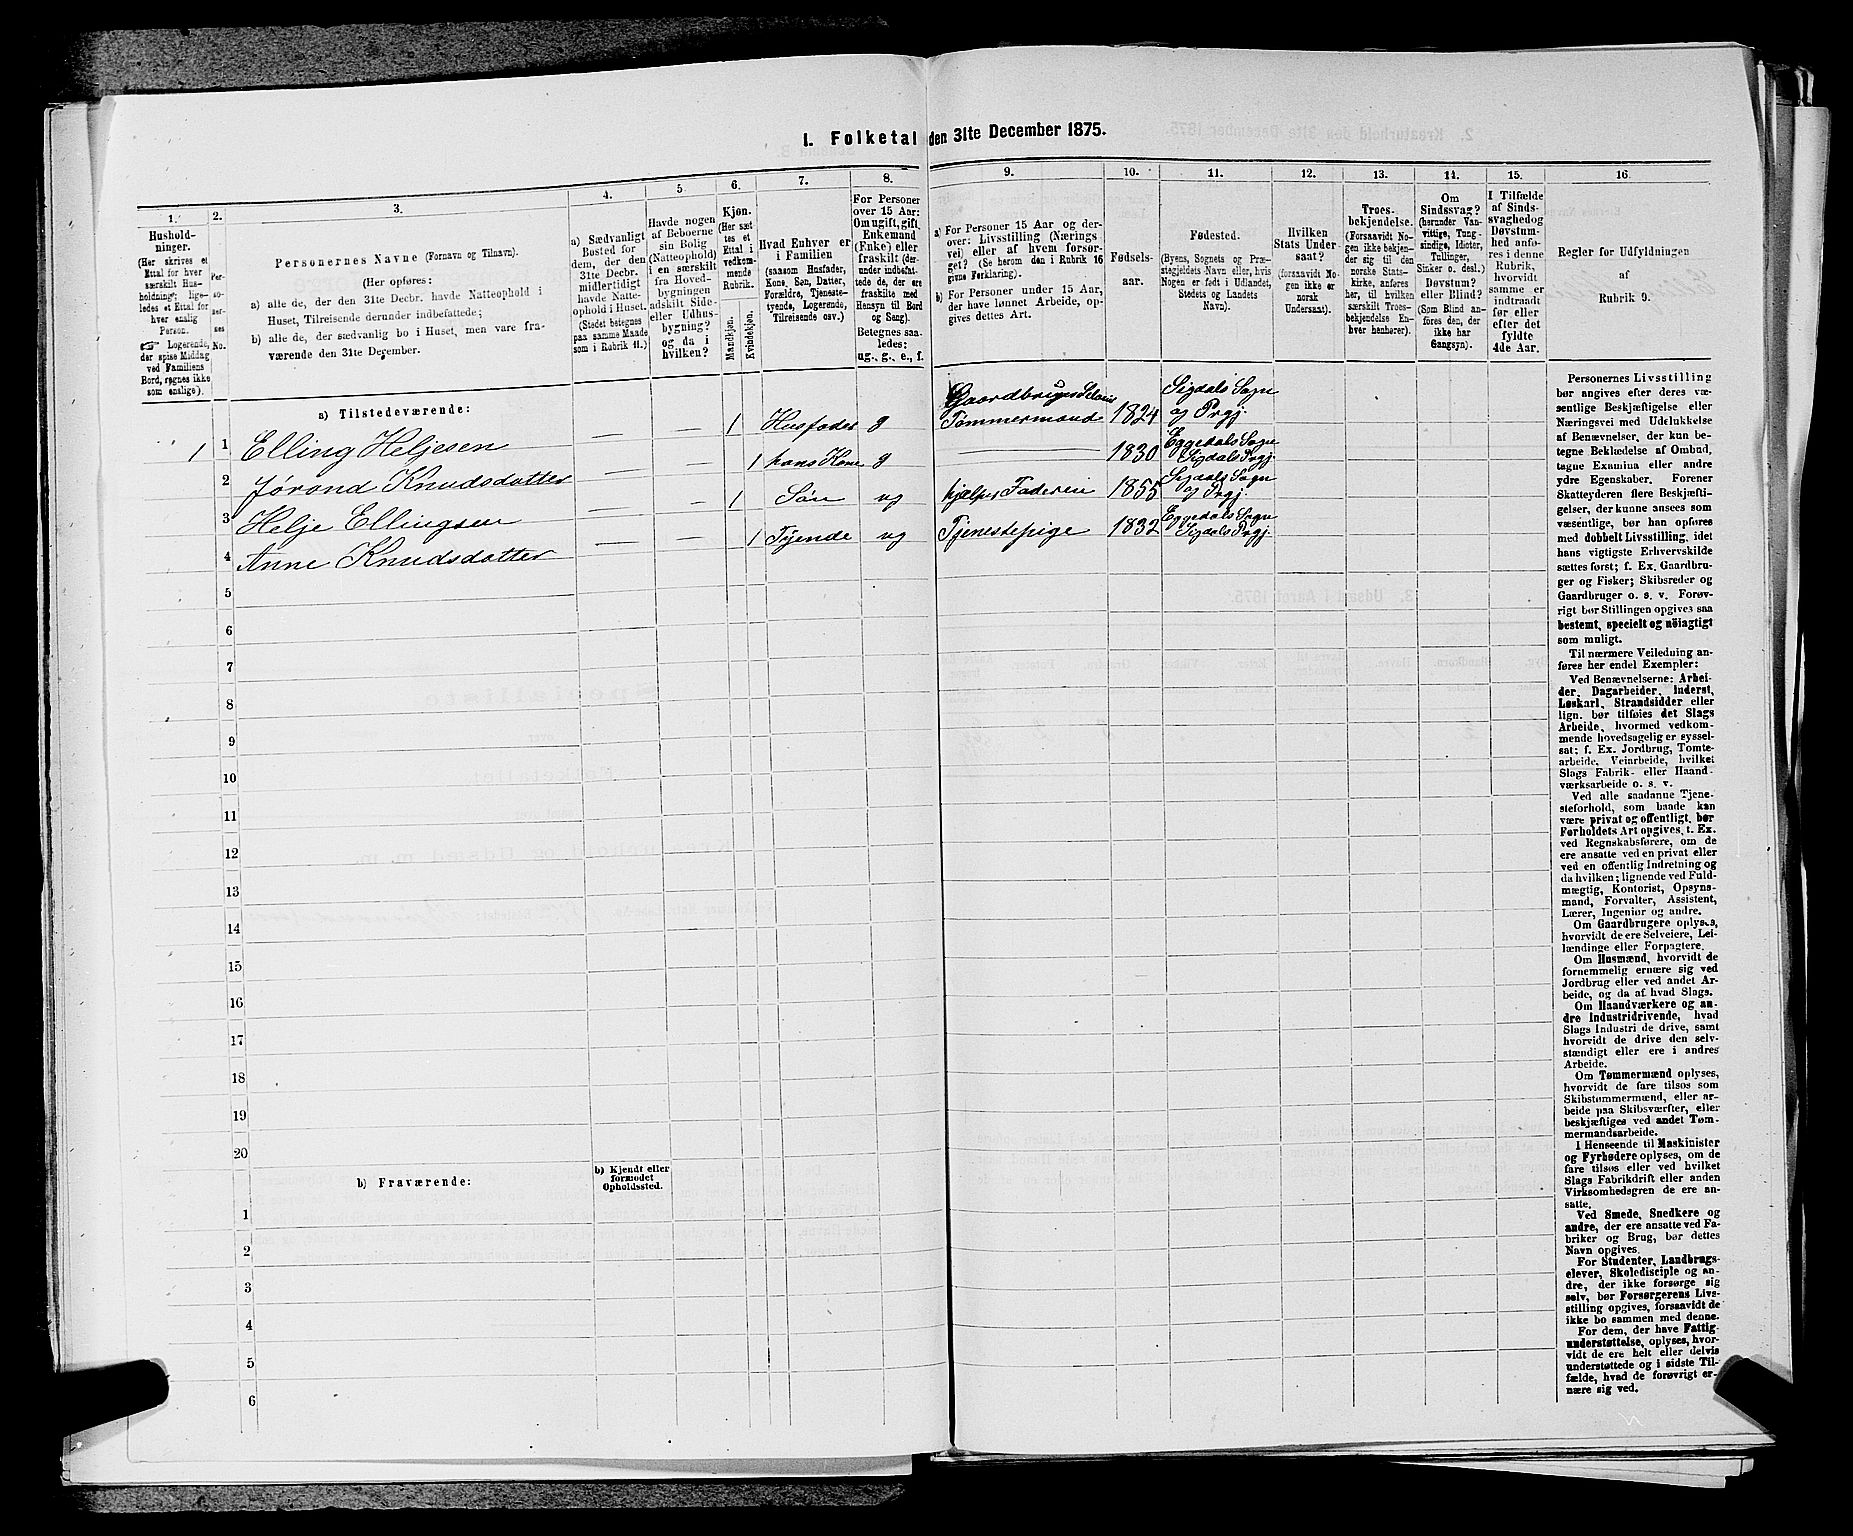 I. Folketal den 31te December 1875.
1. 2. 3. 4. 5. 6. 7. 8. 9. 10. 11. 12. 13. 14. 15. 16
Husholdninger.
(Her skrives et
Ettal for hver
særskilt Husholdning;
ligeledes et Ettal for
hver enslig
Person.
☞ Logerende,
der spise Middag
ved Familiens
Bord, regnes ikke
som enslige).
Personernes No.
Personernes Navne (Fornavn og Tilnavn).
(Her opføres:
a) alle de, der den 31te Decbr. havde Natteophold i
Huset, Tilreisende derunder indbefattede;
b) alle de, der sædvanlig bo i Huset, men vare fraværende
den 31te December.
a) Sædvanligt
Bosted for
dem, der den
31te Decbr.
midlertidigt
havde Natteophold
i Huset.
(Stedet betegnes
paa samme Maade
som i Rubrik 11.)
Havde nogen
af Beboerne
sin Bolig
(Natteophold)
i en særskilt
fra Hovedbygningen
adskilt Side-
eller Udhusbygning?
og da i
hvilken?
Kjøn.
(Her sættes
et
Ettal i
vedkommende
Rubrik.
Mandkjøn.
Kvindekjøn.
Hvad Enhver er
i Familien
(saasom Husfader,
Kone, Søn, Datter,
Forældre, Tjenestetyende,
Logerende,
Tilreisende osv.)
For Personer
over 15 Aar:
Om ugift, gift,
Enkemand
(Enke) eller
fraskilt (derunder
indbefattede
de, der ere
fraskilte med
Hensyn til Bord
og Seng).
Betegnes saaledes:
ug., g., e., f.
a) For Personer 15 Aar og derover:
Livsstilling (Nærings
vei) eller af hvem forsørget?
(Se herom den i Rubrik 16
givne Forklaring.)
b) For Personer under 15 Aar,
der have lønnet Arbeide, opgives
dettes Art.
Fødsels-
aar.
Fødested.
(Byens, Sognets og Præstegjeldets
Navn eller, hvis
Nogen er født i Udlandet,
Stedets og Landets
Navn).
Hvilken
Stats Undersaat?
(forsaavidt Nogen
ikke er
norsk
Undersaat).
Troesbekjendelse.
(Forsaavidt Nogen
ikke bekjender
sig til den
norske Statskirke,
anføres
her, til hvilken
særskilt Troesbekjendelse
Enhver
henhører).
Om
Sindssvag?
(herunder Vanvittige,
Tungsindige,
Idioter,
Tullinger,
Sinker o. desl.)
Døvstum?
eller Blind?
(Som Blind anføres
den, der
ikke har
Gangsyn).
I Tilfælde
af Sindssvaghed
og
Døvstumhed
anføres
i denne
Rubrik,
hvorvidt
samme er
indtraadt
før eller
efter det
fyldte
4de Aar.
Regler for Udfyldningen
af
Rubrik 9.
a) Tilstedeværende:
1 1 Elling Heljesen — — 1 Husfader g Gaardbruger Selveier Tømmermand 1824 Sigdals Sogn og Prgj.
2 Jørond Knudsdatter — — 1 hans Kone g — 1830 Eggedals Sogn Sigdals Prgj.
3 Helje Ellingsen — — 1 Søn ug hjælper Faderen 1855 Sigdals Sogn og Prgj.
4 Anne Knudsdatter — — 1 Tyende ug Tjenestepige 1832 Eggedals Sogn Sigdals Prgj.
5
6
7
8
9
10
11
12
13
14
15
16
17
18
19
20
b) Fraværende:
b) Kjendt eller
formodet
Opholdssted.
1
2
3
4
5
6
Personernes Livsstilling
bør angives efter deres væsentlige
Beskjæftigelse eller
Næringsvei med Udelukkelse
af Benævnelser, der kun betegne
Beklædelse af Ombud,
tagne Examina eller andre
ydre Egenskaber. Forener
Skatteyderen flere Beskjæftigelser,
der kunne ansees som
væsentlige, bør han opføres
med dobbelt Livsstilling, idet
hans vigtigste Erhvervskilde
sættes først; f. Ex. Gaardbruger
og Fisker; Skibsreder og
Gaardbruger o. s. v. Forøvrigt
bør Stillingen opgives saa
bestemt, specielt og nöiagtigt
som muligt.
Til nærmere Veiledning anføres
her endel Exempler:
Ved Benævnelserne: Arbeider,
Dagarbeider, Inderst,
Løskarl, Strandsidder eller
lign. bør tilføies det Slags
Arbeide, hvormed vedkommende
hovedsagelig er sysselsat;
f. Ex. Jordbrug, Tomtearbeide,
Veiarbeide, hvilket
Slags Fabrik- eller Haandværksarbeide
o. s. v.
Ved alle saadanne Tjenesteforhold,
som baade kan
være privat og offentligt, bør
Forholdets Art opgives, t. Ex.
ved Regnskabsførere, om de
ere ansatte ved en privat eller
ved en offentlig Indretning og
da hvilken; lignende ved Fuldmægtig,
Kontorist, Opsynsmand,
Forvalter, Assistent,
Lærer, Ingeniør og andre.
Om Gaardbrugere oplyses,
hvorvidt de ere Selveiere, Leilændinge
eller Forpagtere.
Om Husmænd, hvorvidt de
fornemmelig ernære sig ved
Jordbrug eller ved andet Arbeide,
og da af hvad Slags.
Om Haandværkere og andre
Industridrivende, hvad
Slags Industri de drive, samt
hvorvidt de drive den selvstændigt
eller ere i andres
Arbeide.
Om Tømmermænd oplyses,
hvorvidt de fare tilsøs som
Skibstømmermænd, eller arbeide
paa Skibsværfter, eller
beskjæftiges ved andet Tømmermandsarbeide.
I Henseende til Maskinister
og Fyrbødere oplyses, om de
fare tilsøs eller ved hvilket
Slags Fabrikdrift eller anden
Virksomhedsgren de ere ansatte.
Ved Smede, Snedkere og
andre, der ere ansatte ved Fabriker
og Brug, bør dettes
Navn opgives.
For Studenter, Landbrugselever,
Skoledisciple og andre,
der ikke forsørge sig
selv, bør Forsørgerens Livsstilling
opgives, forsaavidt de
ikke bo sammen med denne.
For dem, der have Fattigunderstøttelse,
oplyses, hvorvidt
de ere helt eller delvis
understøttede og i sidste Tilfælde,
hvad de forøvrigt ernære
sig ved.